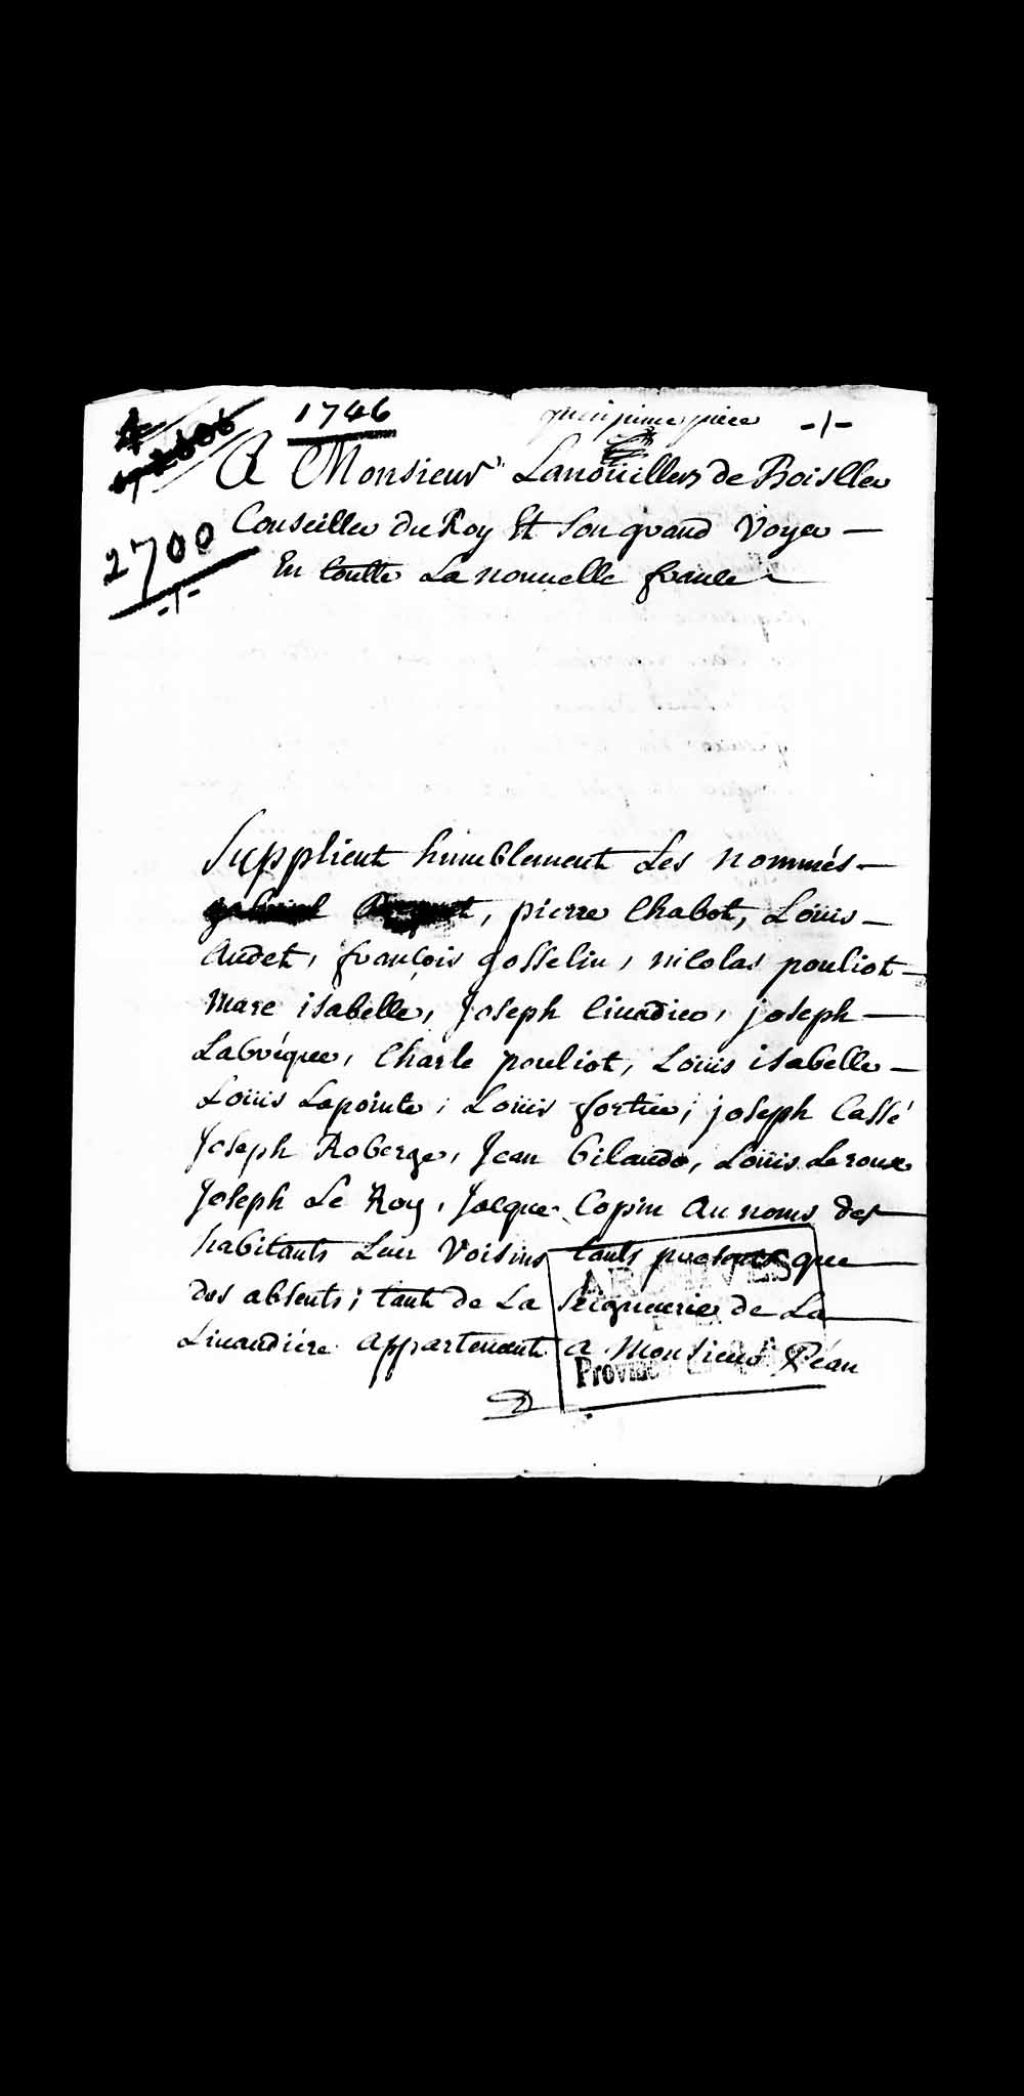 1746
piece -/-
2700
-/-
A Monsieur Lanoüiller de Boiscler
Conseiller du Roy Et Son grand Voyer —
En toutte La nouuelle france
Supplient humblement Les nommés —
gabriel, pierre Chabot, Loüis —
Audet, françois gosselin, nicolas pouliot —
Marc isabelle, Joseph, joseph —
Labréque, Charle pouliot, Loüis isabelle —
Loüis Lapointe, Loüis fortier, joseph Cassé
Joseph Roberge, Jean, Loüis Leroux
Joseph Le Roy, Jacque Copin Au noms des —
habitants Leur Voisins tants presents que —
des absents; tant de La Seigneurie de La —
Liuaudiére appartenant a Monsieur Péan
ARCHIVES
Province